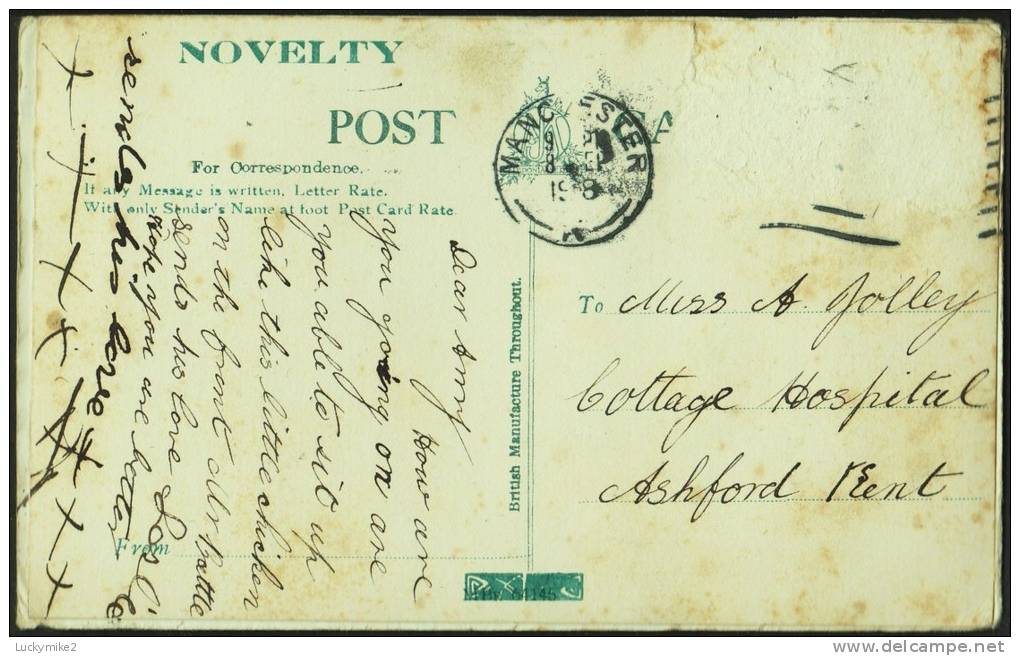 NOVELTY
POST CA
For Correspondence.
If any Message is written, Letter Rate.
With only Sender's Name at foot Post Card Rate
MANCHESTER
British Manufacture Throughout.
To Miss A. Jolley
Cottage Hospital
Ashford Kent
From
Dear Amy
How are
you going on are
you able to sit up
like this little chicken
on the front Mr Battle
sends his love & Leslie
sends his love
Hope you are better
Luckymike2
www.delcampe.net